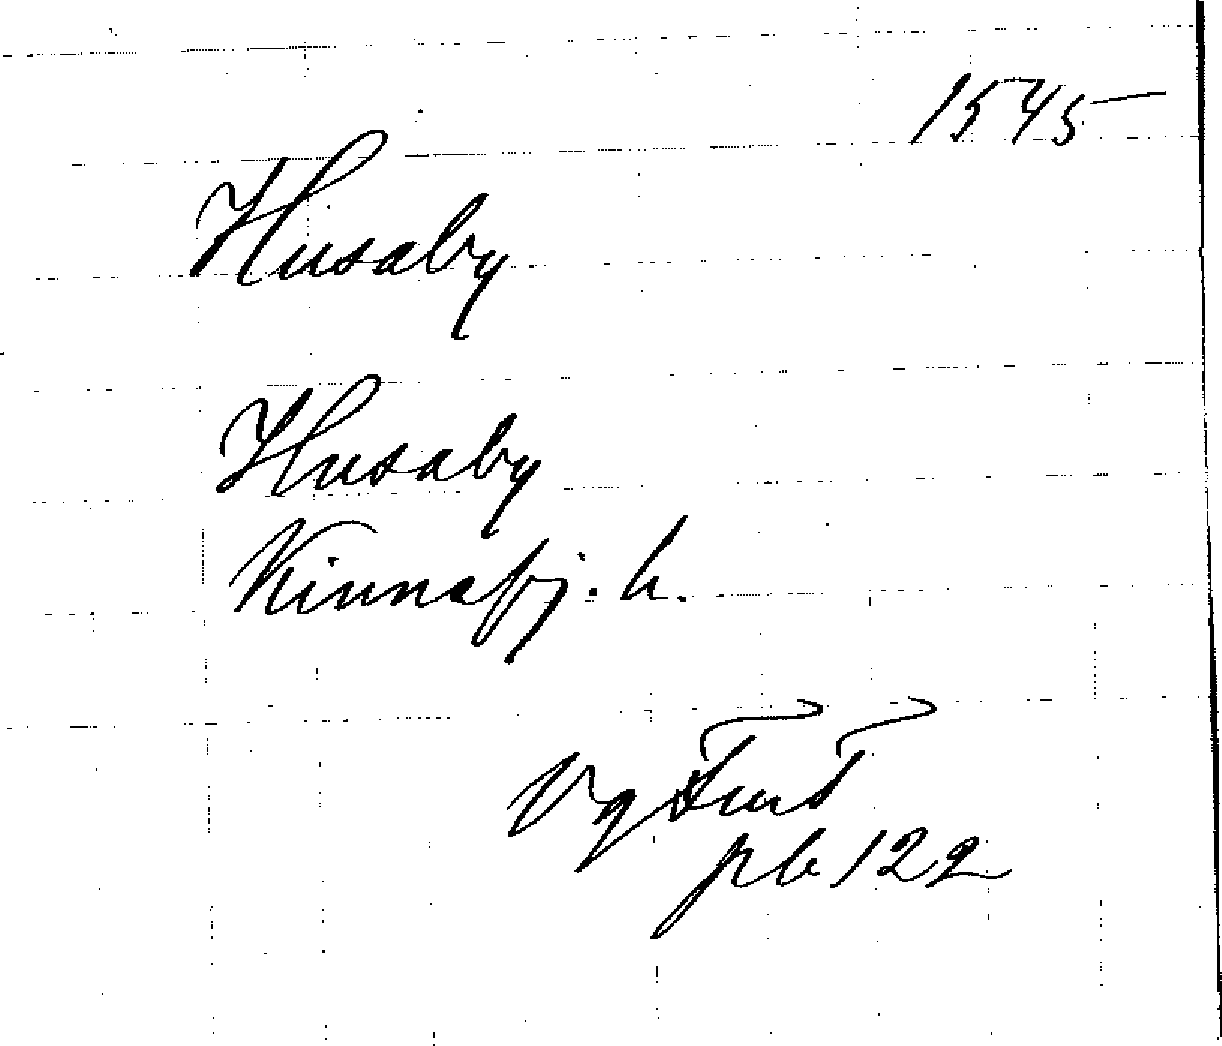 1545
Husaby
Husaby
Kinnefj. h.
Vg
pb 122